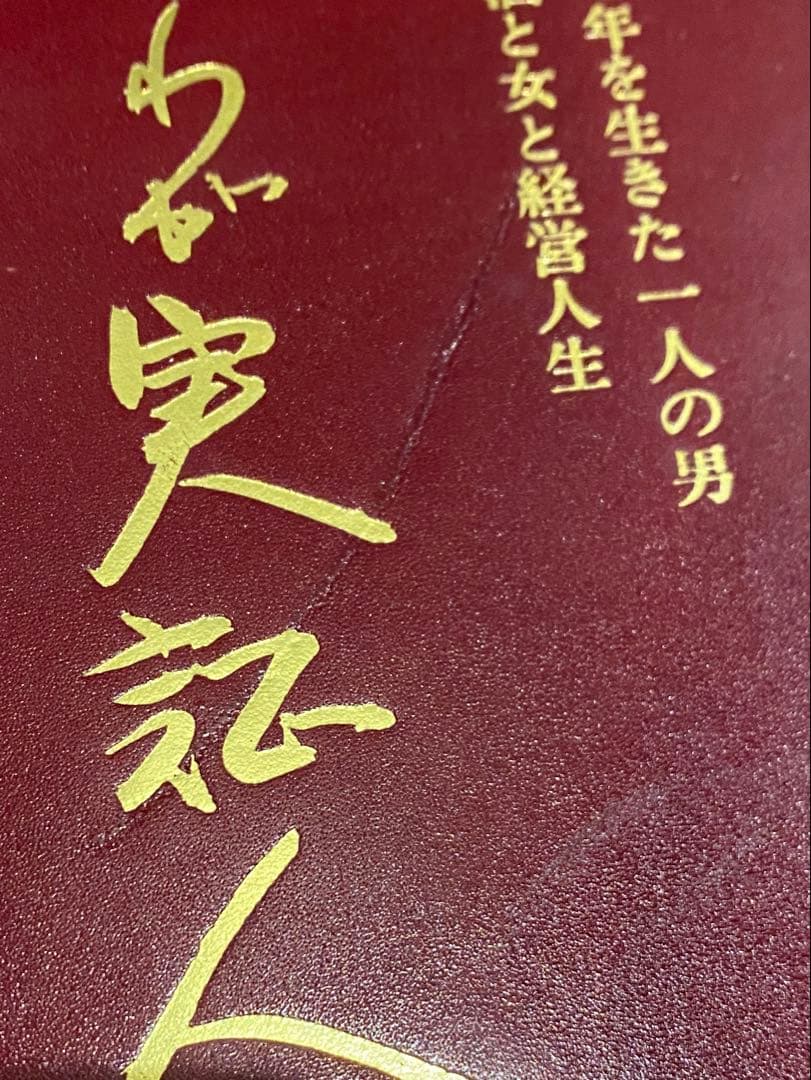 年を生きた一人の男
と女と経営人生
わが実証人